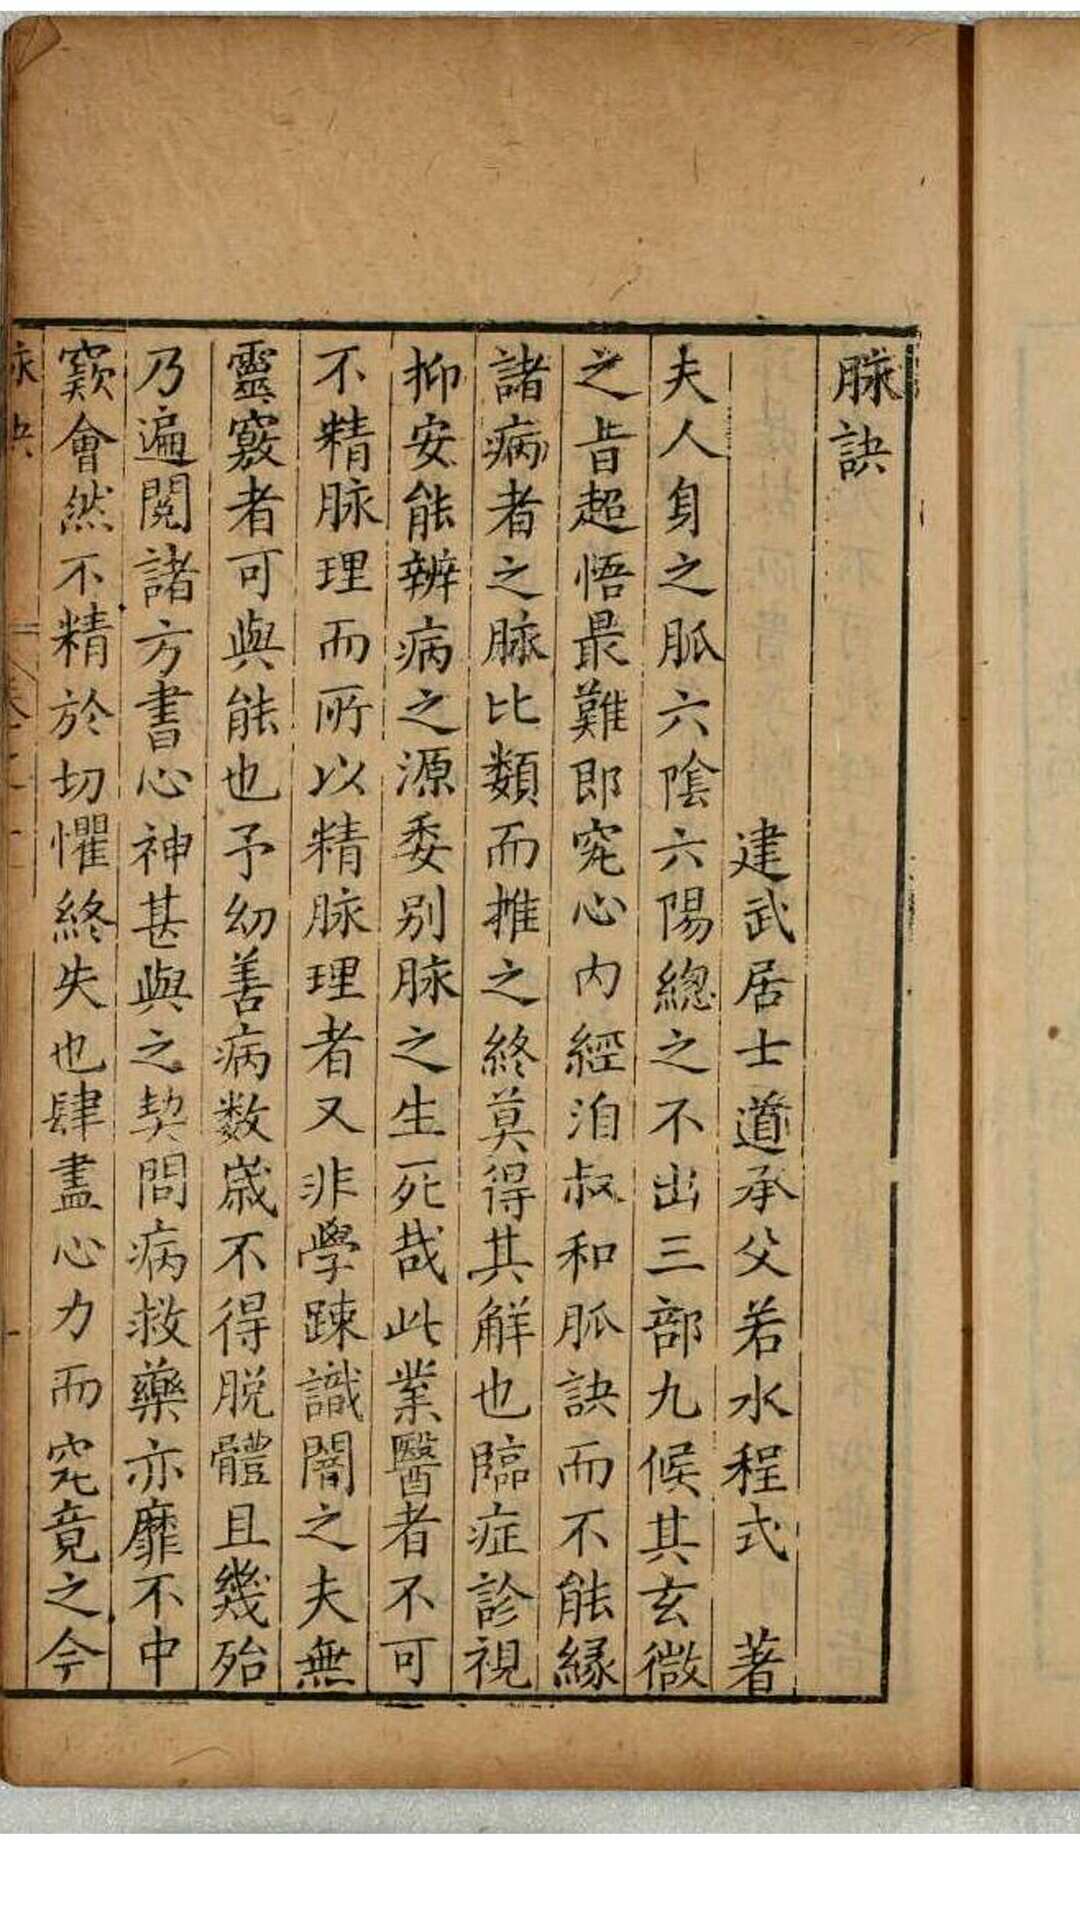 脉訣
建武居士道承父若水程式　著
夫人身之脈六陰六陽緫之不出三部九候其玄微
之旨超悟最難即究心内經洎叔和脈訣而不能縁
諸病者之脉比類而推之終莫得其解也臨症診視
抑安能辨病之源委别脉之生死㢤此業醫者不可
不精脉理而所以精脉理者又非學踈識闇之夫無
靈竅者可與能也予幼善病数嵗不得脱體且幾殆
乃遍閲諸方書心神甚與之契問病救藥亦靡不中
窾會然不精於切懼終失也肆盡心力而究竟之今